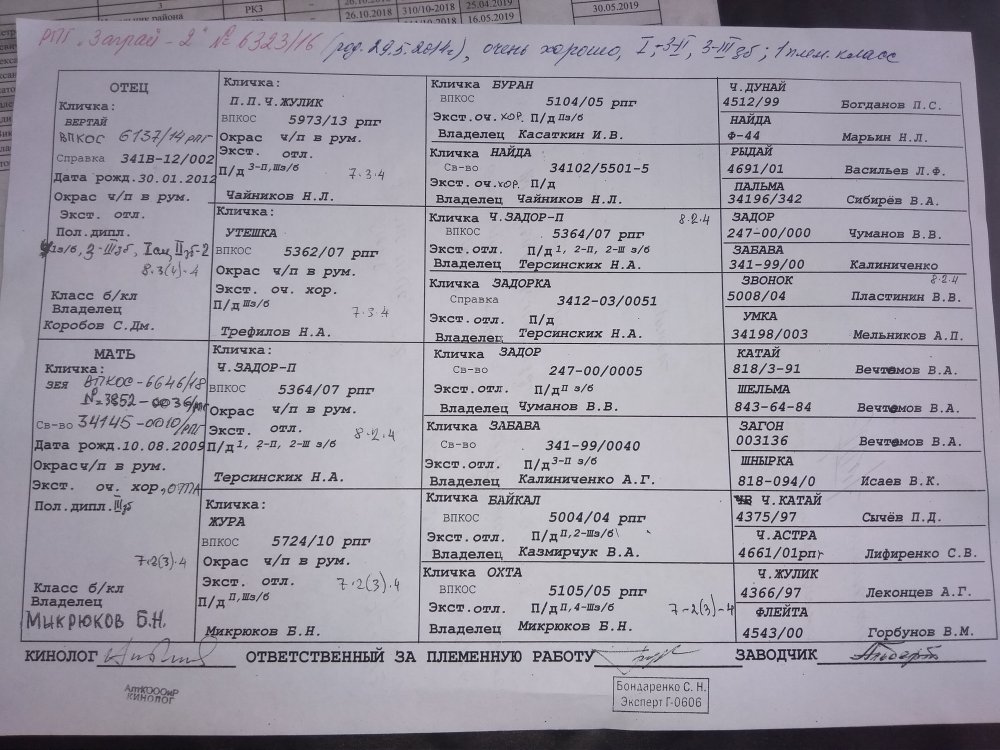 3 РКЗ 26.10.2018 310/10-2018 25.04.2019 30.05.2019
района 16.05.2019
РПГ "Заграй-2" № 6323/16 (род. 29.5.2014г), очень хорошо, I, 3-II, 3-III зб; 1 плем. класс
ОТЕЦ
Кличка:
ВЕРТАЙ
ВПКОС 6137/14 рпг
Справка 341В-12/002
Дата рожд.30.01.2012
Окрас ч/п в рум.
Экст. отл.
Пол.дипл.
8.3(4).4
Класс б/кл
Владелец
Коробов С.Дм.
МАТЬ
Кличка:
ЗЕЯ ВПКОС-6646/18
№=3852-0036/рпг
Св-во 34145-0010/РПГ
Дата рожд.10.08.2009
Окрас ч/п в рум.
Экст. оч. хор.
Пол.дипл. III зб
7.2(3).4
Класс б/кл
Владелец
Микрюков Б.Н.
Кличка:
П.П.Ч.ЖУЛИК
ВПКОС 5973/13 рпг
Окрас ч/п в рум.
Экст. отл.
П/д 3-П,Шз/б
7.3.4
Чайников Н.Л.
Кличка:
УТЕШКА
ВПКОС 5362/07 рпг
Окрас ч/п в рум.
Экст. оч. хор.
П/д Шз/б
7.3.4
Трефилов Н.А.
Кличка:
Ч.ЗАДОР-П
ВПКОС 5364/07 рпг
Окрас ч/п в рум.
Экст. отл.
8.2.4
П/д 1, 2-П, 2-Ш з/б
Терсинских Н.А.
Кличка:
ЖУРА
ВПКОС 5724/10 рпг
Окрас ч/п в рум.
Экст. отл. 7.2(3).4
П/д П,Шз/б
Микрюков Б.Н.
Кличка БУРАН
ВПКОС 5104/05 рпг
Экст.оч.хор. П/д Пз/б
Владелец Касаткин И.В.
Кличка НАЙДА
Св-во 34102/5501-5
Экст.оч.хор. П/д
Владелец Чайников Н.Л.
Кличка Ч.ЗАДОР-П 8.2.4
ВПКОС 5364/07 рпг
Экст.отл. П/д 1, 2-П, 2-Ш з/б
Владелец Терсинских Н.А.
Кличка ЗАДОРКА
Справка 3412-03/0051
Экст.отл. П/д
Владелец Терсинских Н.А.
Кличка ЗАДОР
Св-во 247-00/0005
Экст.отл. П/д П з/б
Владелец Чуманов В.В.
Кличка ЗАБАВА
Св-во 341-99/0040
Экст.отл. П/д 3-П з/б
Владелец Калиниченко А.Г.
Кличка БАЙКАЛ
ВПКОС 5004/04 рпг
Экст.отл. П/д П,2-Шз/б
Владелец Казмирчук В.А.
Кличка ОХТА
ВПКОС 5105/05 рпг
Экст.отл. П/д П,4-Шз/б 7-2(3)-4
Владелец Микрюков Б.Н.
Ч.ДУНАЙ
4512/99 Богданов П.С.
НАЙДА
Ф-44 Марьин Н.Л.
РЫДАЙ
4691/01 Васильев Л.Ф.
ПАЛЬМА
34196/342 Сибирёв В.А.
ЗАДОР
247-00/000 Чуманов В.В.
ЗАБАВА
341-99/00 Калиниченко
ЗВОНОК 8.2.4
5008/04 Пластинин В.В.
УМКА
34198/003 Мельников А.П.
КАТАЙ
818/3-91 Вечтомов В.А.
ШЕЛЬМА
843-64-84 Вечтомов В.А.
ЗАГОН
003136 Вечтомов В.А.
ШНЫРКА
818-094/0 Исаев В.К.
Ч.КАТАЙ
4375/97 Сычёв П.Д.
Ч.АСТРА
4661/01рпг Лифиренко С.В.
Ч.ЖУЛИК
4366/97 Леконцев А.Г.
ФЛЕЙТА
4543/00 Горбунов В.М.
КИНОЛОГ ОТВЕТСТВЕННЫЙ ЗА ПЛЕМЕННУЮ РАБОТУ ЗАВОДЧИК
АлтКОООиР
КИНОЛОГ
Бондаренко С. Н.
Эксперт Г-0606